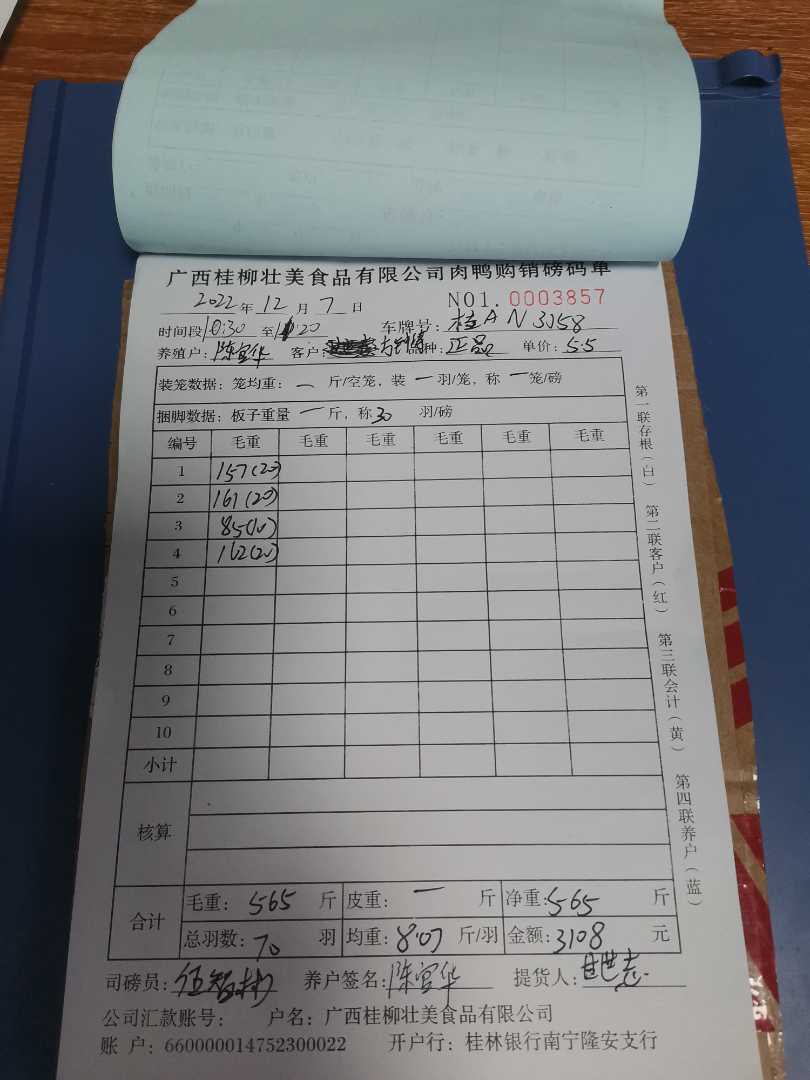 广西桂柳壮美食品有限公司肉鸭购销磅码单
2022年12月7日 NO1.0003857
时间段10:30至11:20 车牌号:桂AN3358
养殖户:陈宫华 客户: 品种:正品 单价:5.5
装笼数据:笼均重:一斤/空笼,装一羽/笼,称一笼/磅
捆脚数据:板子重量一斤,称30羽/磅
编号 毛重 毛重 毛重 毛重 毛重 毛重
1 157(20)
2 161(20)
3 85(10)
4 162(20)
5
6
7
8
9
10
小计
核算
合计 毛重:565斤 皮重:一斤 净重:565斤
总羽数:70羽 均重:8.07斤/羽 金额:3108元
司磅员:伍智彬 养户签名:陈宫华 提货人:
公司汇款账号: 户名:广西桂柳壮美食品有限公司
账户:660000014752300022 开户行:桂林银行南宁隆安支行
第一联存根(白) 第二联客户(红) 第三联会计(黄) 第四联养户(蓝)